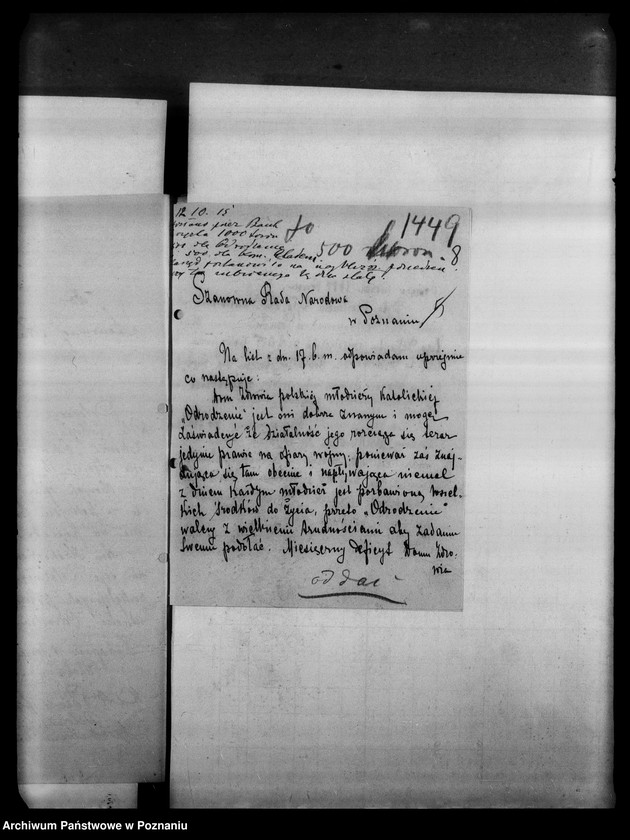 12 10. 15
przez Bank
1000 koron
dla Odrodzenia
500 dla kom.
500 koron
1449
8
Szanowna Rada Narodowa
w Poznaniu
Na list z dn. 17. b. m. odpowiadam uprzejmie
co następuje:
Dom Zdrowia polskiéj młodzieży Katolickiéj
„Odrodzenie" jest mi dobrze znanym i mogę
zaświadczyć że działalność jego rozciąga się teraz
jedynie prawie na ofiary wojny; ponieważ zaś znaj-
dująca się tam obecnie i napływająca niemal
z dniem każdym młodzież jest pozbawioną wszel-
kich środków do życia, przeto „Odrodzenie"
walczy z wielkiemi trudnościami aby zadaniu
swemu podołać. Miesięczny deficyt Domu Zdro-
wia
oddać
Archiwum Państwowe w Poznaniu